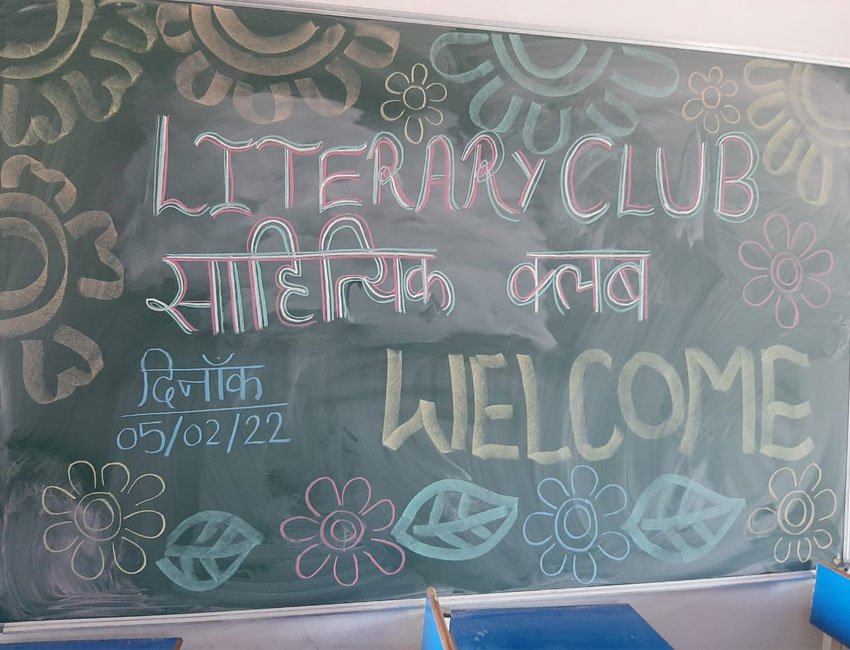 LITERARY CLUB
साहित्यिक क्लब
दिनाँक
05/02/22
WELCOME